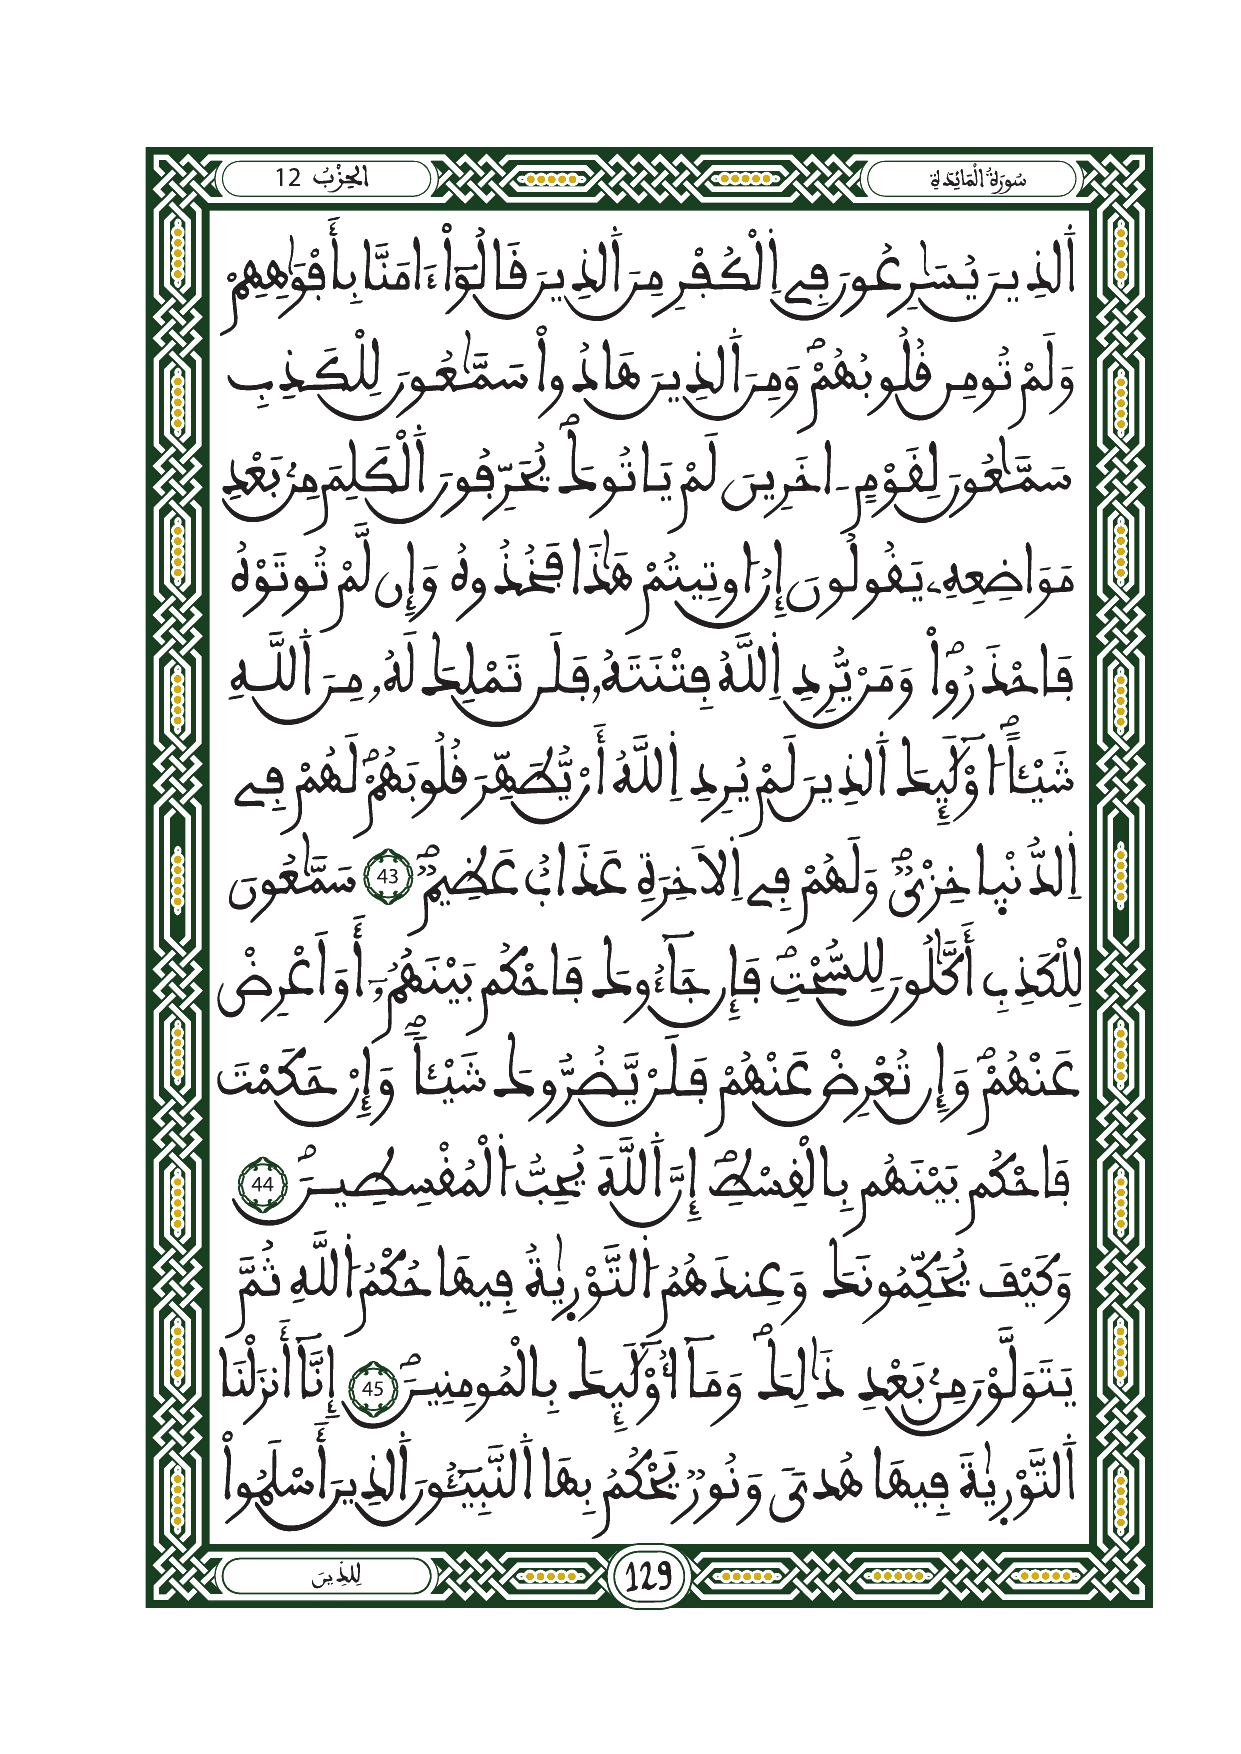 سُورَةُ الْمَائِدَةِ
الحِزْبُ 12
اَ۬لذِينَ يُسَٰرِعُونَ فِے اِ۬لْكُفْرِ مِنَ اَ۬لذِينَ قَالُوٓاْ ءَامَنَّا بِأَفْوَٰهِهِمْ
وَلَمْ تُومِن قُلُوبُهُمْۖ وَمِنَ اَ۬لذِينَ هَادُواْ سَمَّٰعُونَ لِلْكَذِبِ
سَمَّٰعُونَ لِقَوْمٍ ـ اخَرِينَ لَمْ يَاتُوكَۖ يُحَرِّفُونَ اَ۬لْكَلِمَ مِنۢ بَعْدِ
مَوَاضِعِهِۦ يَقُولُونَ إِنُ ا۟وتِيتُمْ هَٰذَا فَخُذُوهُ وَإِن لَّمْ تُوتَوْهُ
فَاحْذَرُواْۖ وَمَنْ يُّرِدِ اِ۬للَّهُ فِتْنَتَهُۥ فَلَن تَمْلِكَ لَهُۥ مِنَ اَ۬للَّهِ
شَيْـٔاًۖ ا۟وْلَٰٓئِكَ اَ۬لذِينَ لَمْ يُرِدِ اِ۬للَّهُ أَنْ يُّطَهِّرَ قُلُوبَهُمْۖ لَهُمْ فِے
اِ۬لدُّنْي۪ا خِزْيٌۖ وَلَهُمْ فِے اِ۬لَاخِرَةِ عَذَابٌ عَظِيمٌۖ 43 سَمَّٰعُونَ
لِلْكَذِبِ أَكَّٰلُونَ لِلسُّحْتِۖ فَإِن جَآءُوكَ فَاحْكُم بَيْنَهُمُۥٓ أَوَ اَعْرِضْ
عَنْهُمْۖ وَإِن تُعْرِضْ عَنْهُمْ فَلَنْ يَّضُرُّوكَ شَيْـٔاًۖ وَإِنْ حَكَمْتَ
فَاحْكُم بَيْنَهُم بِالْقِسْطِۖ إِنَّ اَ۬للَّهَ يُحِبُّ اُ۬لْمُقْسِطِينَۖ 44
وَكَيْفَ يُحَكِّمُونَكَ وَعِندَهُمُ اُ۬لتَّوْر۪يٰةُ فِيهَا حُكْمُ اُ۬للَّهِ ثُمَّ
يَتَوَلَّوْنَ مِنۢ بَعْدِ ذَٰلِكَۖ وَمَآ أُوْلَٰٓئِكَ بِالْمُومِنِينَۖ 45 إِنَّآ أَنزَلْنَا
اَ۬لتَّوْر۪يٰةَ فِيهَا هُدىً وَنُورٌ يَحْكُمُ بِهَا اَ۬لنَّبِيٓـُٔونَ اَ۬لذِينَ أَسْلَمُواْ
لِلذِينَ
129